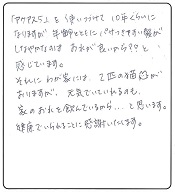 「アクアス5」を使いつづけて 10年くらいに
なりますが 年齢とともにパサつきやすい髪が
しなやかなのは お水が良いから?? と
感じています。
それに わが家には、2匹の猫が
おりますが、元気でいてくれるのも、
家のお水を飲んでいるから… と思います。
健康でいられることに感謝いたします。